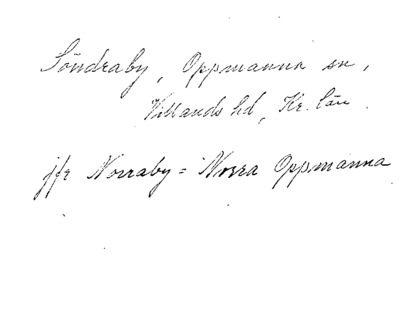 Söndraby, Oppmanna sn,
Villands hd, Kr. län.
jfr Norraby = Norra Oppmanna